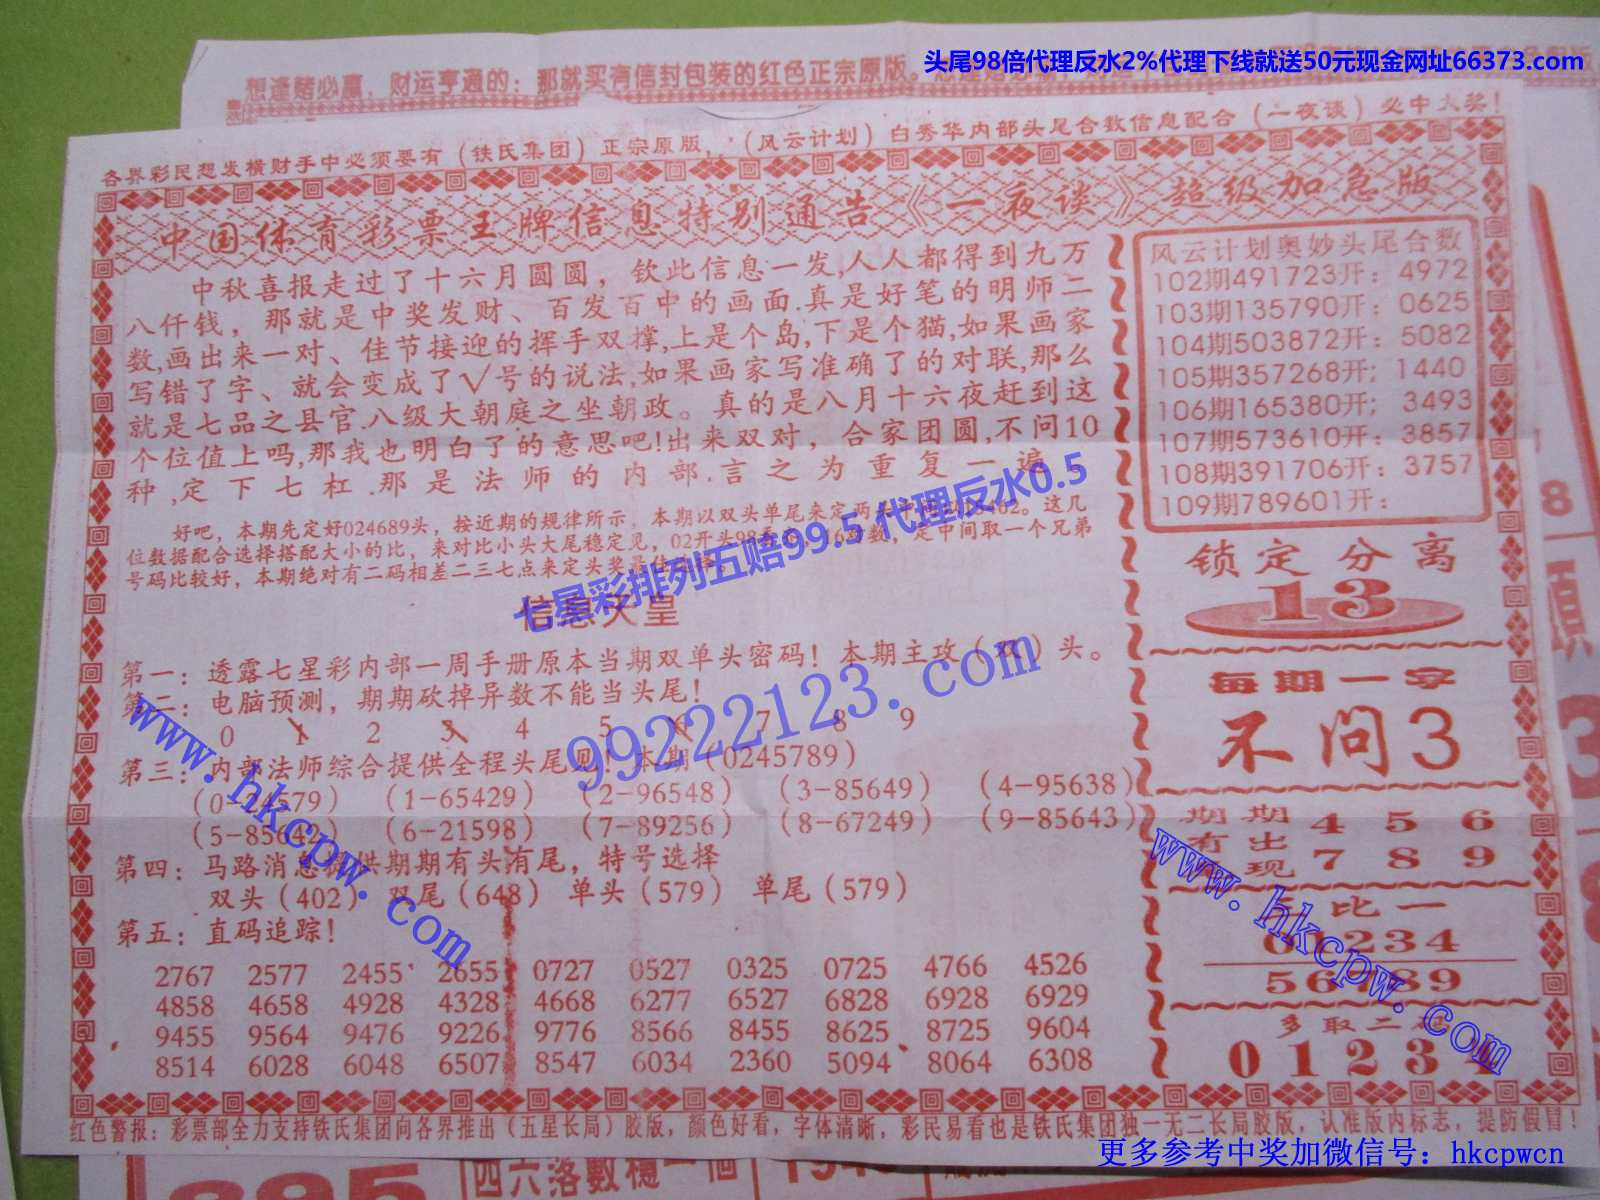 头尾98倍代理反水2%代理下线就送50元现金网址66373.com
想逢赌必赢，财运亨通的：那就买有信封包装的红色正宗原版。
各界彩民想发横财手中必须要有（铁氏集团）正宗原版，（风云计划）白秀华内部头尾合数信息配合（一夜谈）必中大奖！
中国体育彩票王牌信息特别通告《一夜谈》超级加急版
中秋喜报走过了十六月圆圆，钦此信息一发,人人都得到九万
八仟钱，那就是中奖发财、百发百中的画面.真是好笔的明师二
数,画出来一对、佳节接迎的挥手双撑,上是个岛,下是个猫,如果画家
写错了字、就会变成了√号的说法,如果画家写准确了的对联,那么
就是七品之县官.八级大朝庭之坐朝政。真的是八月十六夜赶到这
个位值上吗,那我也明白了的意思吧!出来双对，合家团圆,不问10
种,定下七杠.那是法师的内部.言之为重复一遍。
好吧，本期先定好024689头，按近期的规律所示，本期以双头单尾来定两头
。这几
位数据配合选择搭配大小的比，来对比小头大尾稳定见，02开头98
定中间取一个兄弟
号码比较好，本期绝对有二码相差二三七点来定头奖
七星彩排列五赔99.5 代理反水0.5
信息天皇
第一：透露七星彩内部一周手册原本当期双单头密码！本期主攻（双）头。
第二：电脑预测，期期砍掉异数不能当头尾！
0 1 2 3 4 5 6 7 8 9
99222123.com
第三：内部法师综合提供全程头尾见！本期（0245789）
（0-24579）（1-65429）（2-96548）（3-85649）（4-95638）
（5-85642）（6-21598）（7-89256）（8-67249）（9-85643）
www.hkcpw.com
第四：马路消息提供期期有头有尾，特号选择
双头（402） 双尾（648） 单头（579） 单尾（579）
第五：直码追踪！
2767 2577 2455 2655 0727 0527 0325 0725 4766 4526
4858 4658 4928 4328 4668 6277 6527 6828 6928 6929
9455 9564 9476 9226 9776 8566 8455 8625 8725 9604
8514 6028 6048 6507 8547 6034 2360 5094 8064 6308
风云计划奥妙头尾合数
102期491723开：4972
103期135790开：0625
104期503872开：5082
105期357268开；1440
106期165380开；3493
107期573610开：3857
108期391706开：3757
109期789601开：
锁定分离
13
每期一字
不问3
期期 4 5 6
有出
现 7 8 9
www.hkcpw.com
比一
01234
56789
多取二码
0 1 2 3 4
红色警报：彩票部全力支持铁氏集团向各界推出（五星长局）胶版，颜色好看，字体清晰，彩民易看也是铁氏集团独一无二长局胶版，认准版内标志，提防假冒！
更多参考中奖加微信号：hkcpwcn
四六落數穩一個